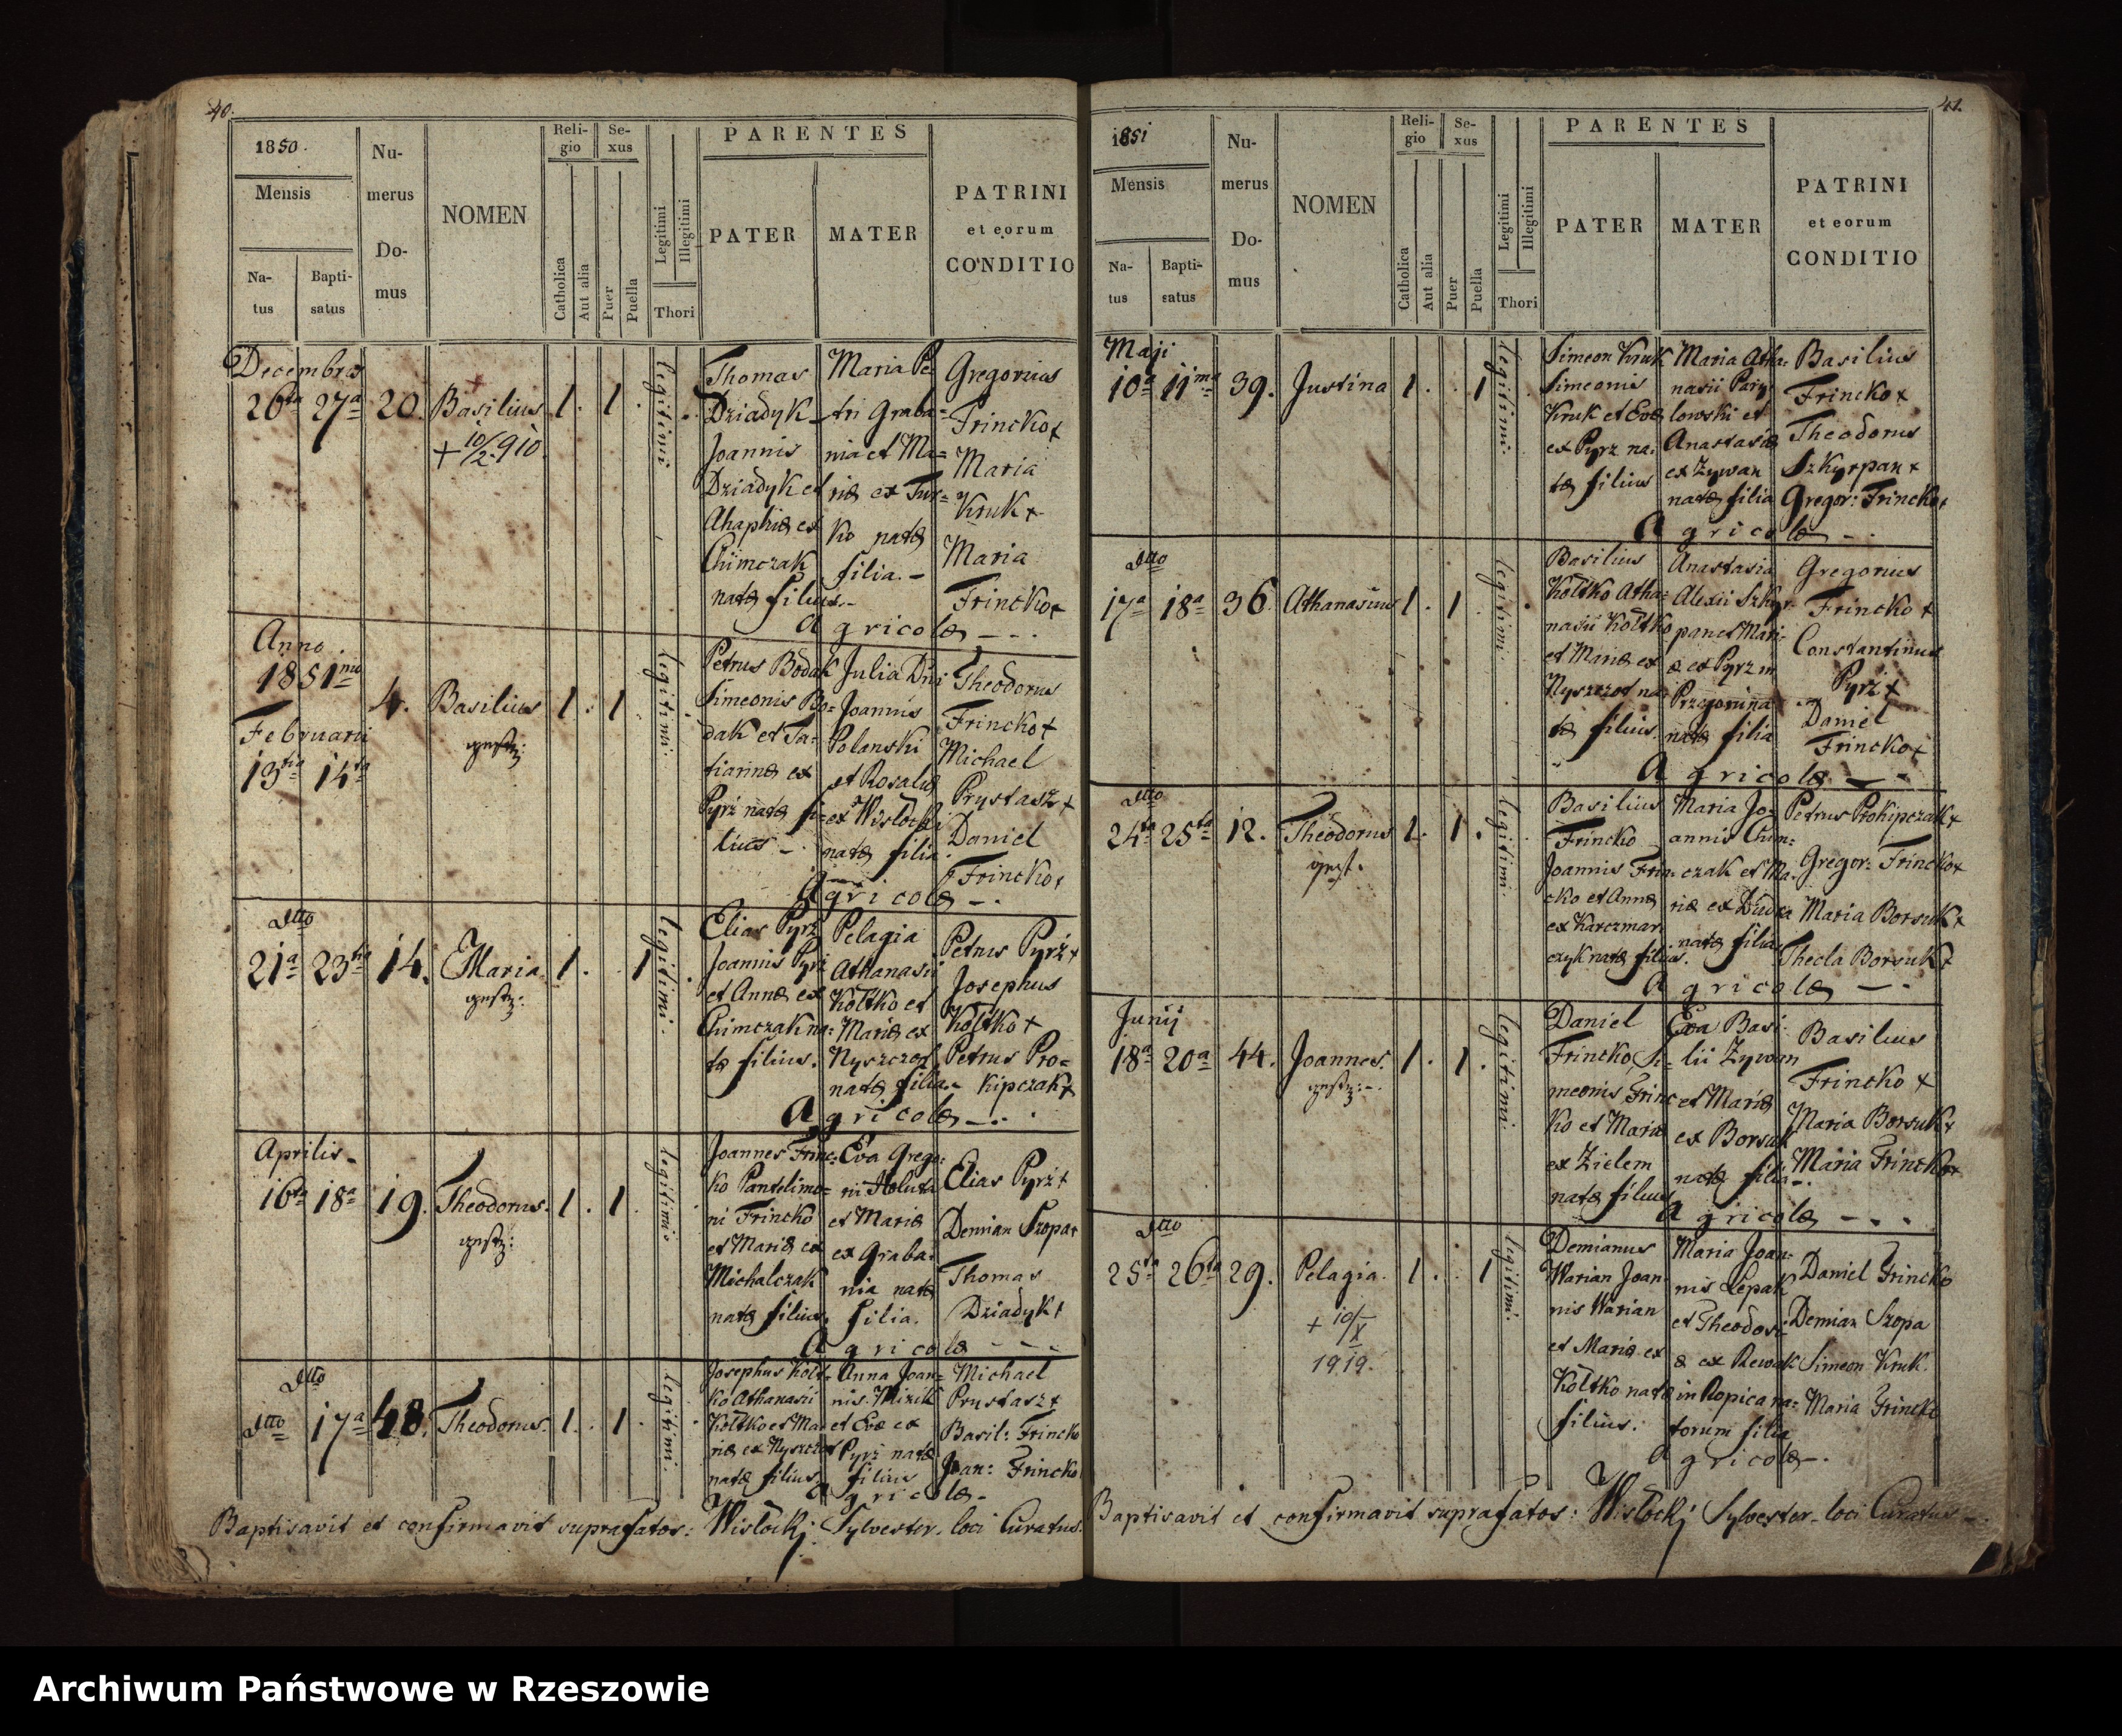 40.
1850.
Mensis
Na-
tus
Bapti-
satus
Nu-
merus
Do-
mus
NOMEN
Reli-
gio
Catholica
Aut alia
Se-
xus
Puer
Puella
Legitimi
Illegitimi
Thori
PARENTES
PATER
MATER
PATRINI
et eorum
CONDITIO
Decembris
26ta 27a 20. Basilius 1. 1.
+ 10/2.910.
legitimi
Thomas
Dziadyk
Joannis
Dziadyk et
Ahaphiæ ex
Chimczak
natæ filius.-
Maria Pe-
tri Graba=
nia et Ma=
riæ ex Tur=
ko natæ
filia.-
Gregorius
Frincko+
Maria
Kruk+
Maria
Frincko+
Agricolæ
Anno
1851mo
Februarii
13tia 14ta
4. Basilius 1. 1
legitimi
Petrus Bodak
Simeonis Bo=
dak et Ta=
tiannæ ex
Pyrż natæ fi=
lius -
Julia
Joannis
Polanski
et Rosaliæ
ex Wisłocki
natæ filia.
Theodorus
Frincko+
Michael
Prystasz+
Daniel
Frincko+
Agricolæ
dtto
21a 23tia 14. Maria 1. 1
legitimi
Elias Pyrż
Joannis Pyrż
et Annæ ex
Chimczak na=
tæ filius.
Pelagia
Athanasii
Kołtko et
Mariæ ex
Nyszczot
natæ filia.-
Petrus Pyrż+
Josephus
Kołtko+
Petrus Pro=
kipczak+
Agricolæ
Aprilis
16ta 18a 19. Theodorus. 1. 1.
legitimi
Joannes Frinc=
ko Pantelimo=
ni Frincko
et Mariæ ex
Michalczak
natæ filius
Eva Grego:
rii Holuta
et Mariæ
ex Graba:
nia natæ
filia.
Elias Pyrż+
Demian Szopa+
Thomas
Dziadyk+
Agricolæ
dtto
dtto 17a 48. Theodorus. 1. 1.
legitimi
Josephus Kołt-
ko Athanasii
Kołtko et Ma-
riæ ex Nyszczot
natæ filius.
Anna Joan=
nis Mizik
et Evæ ex
Pyrż natæ
filius
Michael
Prystasz+
Basil: Frincko
Joan: Frincko
Agricolæ
Baptisavit et confirmavit suprafatos: Wisłocki Sylvester. loci Curatus.
41.
1851
Mensis
Na-
tus
Bapti-
satus
Nu-
merus
Do-
mus
NOMEN
Reli-
gio
Catholica
Aut alia
Se-
xus
Puer
Puella
Legitimi
Illegitimi
Thori
PARENTES
PATER
MATER
PATRINI
et eorum
CONDITIO
Maji
10a 11ma 39. Justina 1. 1
legitimi
Simeon Kruk
Simeonis
Kruk et Evæ
ex Pyrz na:
tæ filius
Maria Atha:
nasii
lowski et
Anastasiæ
ex Zywan
natæ filia
Basilius
Frincko+
Theodorus
Szkyrpan+
Gregor: Frincko+
Agricolæ
dtto
17a 18a 36. Athanasius 1. 1.
legitimi
Basilius
Kołtko Atha:
nasii Kołtko
et Mariæ ex
Nyszczot na:
tæ filius.
Anastasia
Alexii Szkyr-
pan et Mari-
æ ex Pyrz in
Przegonina
natæ filia
Gregorius
Frincko+
Constantinus
Pyrż+
Daniel
Frincko+
Agricolæ
dtto
24ta 25ta 12. Theodorus 1. 1.
legitimi
Basilius
Frincko
Joannis Frin-
cko et Annæ
ex Karczmar
czyk natæ filius.
Maria Jo-
annis Chim:
czak et Ma:
riæ ex Dudra
natæ filia
Petrus Prokipczak+
Gregor: Frincko+
Maria Borsuk+
Thecla Borsuk+
Agricolæ
Junij
18a 20a 44. Joannes. 1. 1.
legitimi
Daniel
Frincko Si-
meonis Frinc
ko et Mariæ
ex Zielem
natæ filius
Eva Basi-
lii Zywan
et Mariæ
ex Borsuk
natæ filia.
Basilius
Frincko+
Maria Borsuk+
Maria Frincko+
Agricolæ
dtto
25ta 26ta 29. Pelagia. 1. 1
+ 10/X
1919.
legitimi
Demianus
Warian Joan
nis Warian
et Mariæ ex
Kołtko natæ
filius.
Maria Joan:
nis Lepak
et Theodosi-
æ ex Rewak
in Ropica na:
torum filia
Daniel Frincko
Demian Szopa
Simeon Kruk.
Maria Frincko
Agricolæ
Baptisavit et confirmavit suprafatos: Wisłocki Sylvester. loci Curatus
Archiwum Państwowe w Rzeszowie